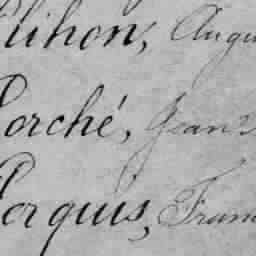 lihon, Augu
Porché, Jean
Porquis, Fran